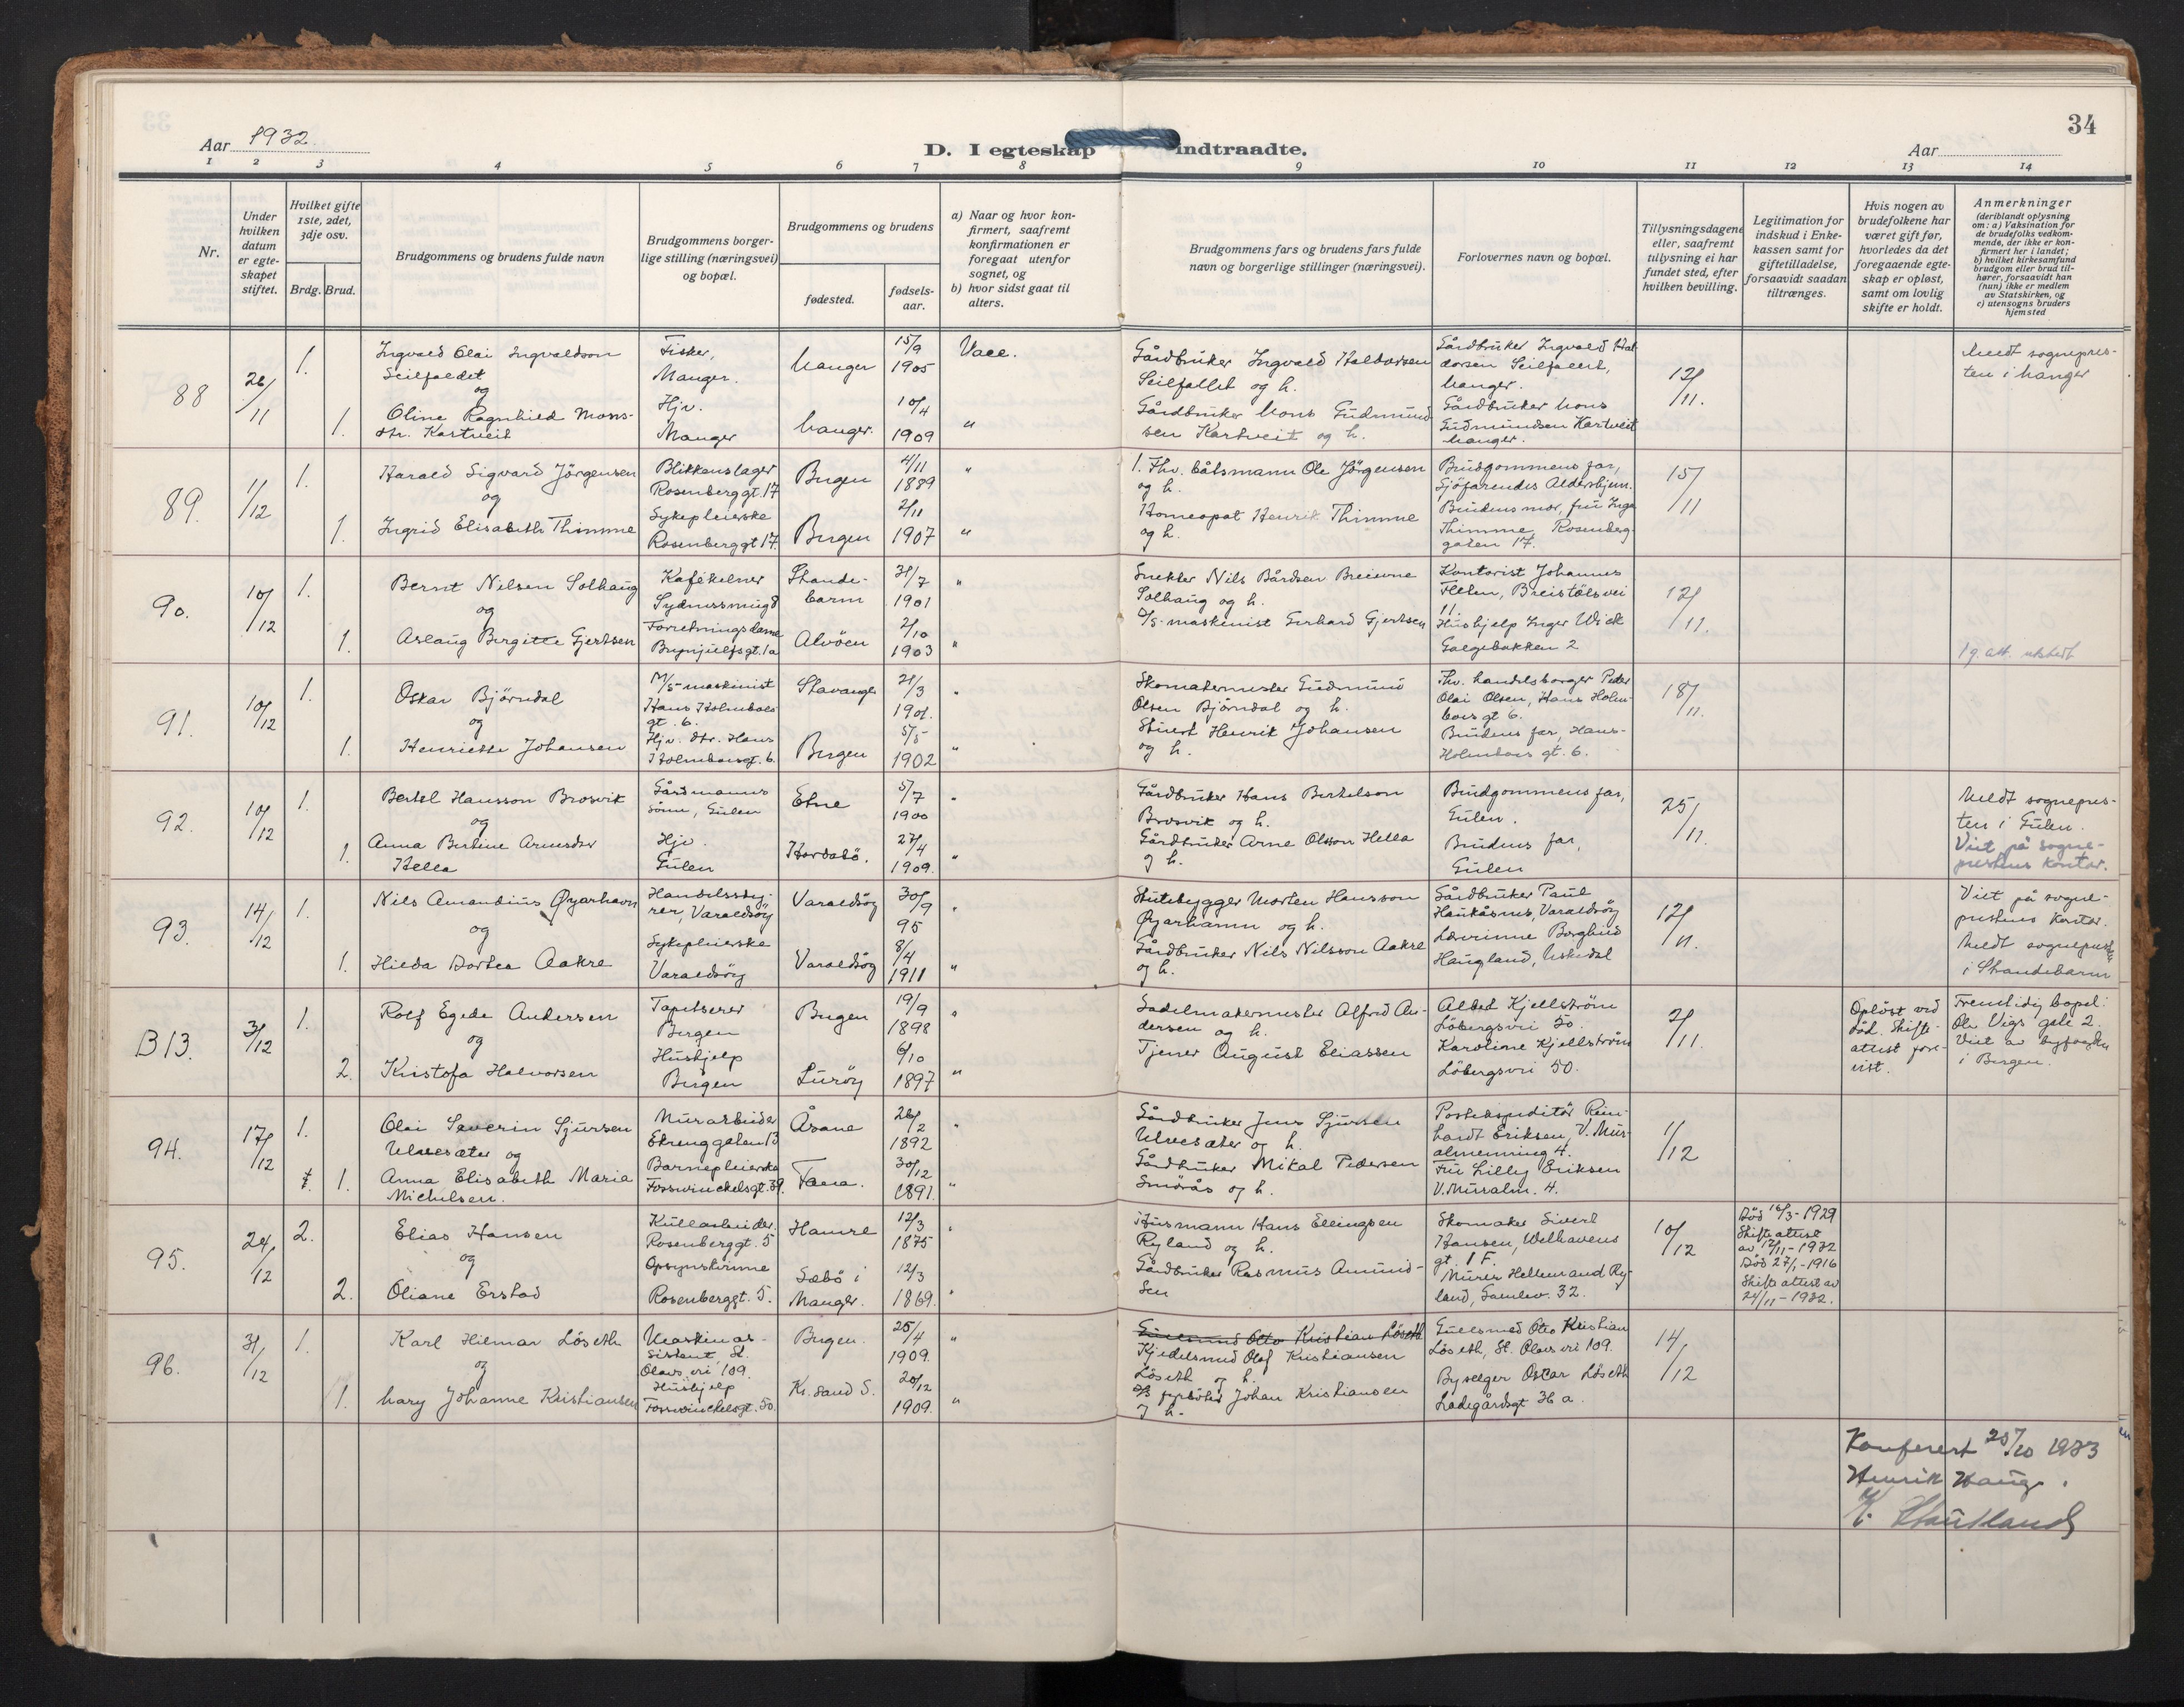 34
Aar 1932.
D. I egteskap indtraadte.
Aar
1 2 3 4 5 6 7 8 9 10 11 12 13 14
Nr.
Under hvilken datum er egteskapet stiftet.
Hvilket gifte 1ste, 2det, 3dje osv.
Brdg. Brud.
Brudgommens og brudens fulde navn
Brudgommens borgerlige stilling (næringsvei) og bopæl.
Brudgommens og brudens
fødested.
fødselsaar.
a) Naar og hvor konfirmert, saafremt konfirmationen er foregaat utenfor sognet, og
b) hvor sidst gaat til alters.
Brudgommens fars og brudens fars fulde navn og borgerlige stillinger (næringsvei).
Forlovernes navn og bopæl.
Tillysningsdagene eller, saafremt tillysning ei har fundet sted, efter hvilken bevilling.
Legitimation for indskud i Enkekassen samt for giftetilladelse, forsaavidt saadan tiltrænges.
Hvis nogen av brudefolkene har været gift før, hvorledes da det foregaaende egteskap er opløst, samt om lovlig skifte er holdt.
Anmerkninger
(deriblandt oplysning om: a) Vaksination for de brudefolks vedkommende, der ikke er konfirmert her i landet;
b) hvilket kirkesamfund brudgom eller brud tilhører, forsaavidt han (hun) ikke er medlem av Statskirken, og
c) utensogns bruders hjemsted
88 26/11 1. Ingvald Olai Ingvaldson Seilfaldet
Fisker, Manger. Manger 15/9 1905
Gårdbruker Ingvald Haldorsen Seilfallet og h.
Gårdbruker Ingvald Haldorsen Seilfallet, Manger.
12/11. Meldt sognepresten i Manger
og
1. Oline Ragnhild Monsdtr. Kartveit
Hjv. Manger Manger. 10/4 1909 "
Gårdbruker Mons Gudmundsen Kartveit og h.
Gårdbruker Mons Gudmundsen Kartveit Manger.
89. 1/12 1. Harald Sigvard Jörgensen
Blikkenslager Rosenberggt. 17 Bergen 4/11 1889 "
f. Thv. båtsmann Ole Jörgensen og h.
Brudgommens far, Sjöfarendes Aldershjem.
15/11
og
1. Ingrid Elisabeth Thimme
Sykepleierske Rosenberggt 17. Bergen 2/11 1907 "
Homeopat Henrik Thimme og h.
Brudens mor, fru Inga Thimme, Rosenberggaten 17.
90. 10/12 1. Bernt Nilsen Solhaug
Kafékelner Sydnessmug 8 Strandebarm 31/7 1901 "
Snekker Nils Bårdsen Breievne Solhaug og h.
Kontorist Johannes Fleten, Breistölsvei 11
12/11.
og
1. Aslaug Birgitte Gjertsen
Forretningsdame Brynjulfsgt. 1a Alvöen 2/10 1903 "
D/S-maskinist Gerhard Gjertsen
Hushjelp Inger Wick Galgebakken 2
1 g. att. utstedt
91. 10/12 1. Oskar Björndal
M/S-maskinist Hans Holmboes gt. 6. Stavanger 21/3 1901.
Skomakermester Gudmund Olsen Björndal og h.
Thv. handelsborger Peder Olai Olsen, Hans Holmboes gt 6.
18/11.
og
1. Henriette Johansen
Hjv. dtr. Hans Holmboesgt. 6. Bergen 5/5 1902 "
Stuert Henrik Johansen og h.
Brudens far, Hans Holmboes gt. 6.
92. 10/12 1. Bertel Hansson Brosvik
Gårdmanns sönn, Gulen Etne 5/7 1900
Gårdbruker Hans Bertelson Brosvik og h.
Brudgommens far, Gulen.
25/11. Meldt sognepresten i Gulen. Viet på sogneprestens kontor.
og
1. Anna Bertine Arnesdtr Hella
Hjv. Gulen Hordabö. 27/4 1909. "
Gårdbruker Arne Olsson Hella og h.
Brudens far, Gulen
93. 14/12 1. Nils Amandius Øyarhavn
Handelsstyrer, Varaldsöy Varaldsöy 30/9 95
Skutebygger Morten Hansson Øyarhamn og h.
Gårdbruker Paul Haukåsnes, Varaldsöy
12/11. Viet på sogneprestens kontor. Meldt sognepresten i Strandebarm
og
1. Hilda Dortea Aakre
Sykepleierske Varaldsöy Varaldsöy 8/4 1911 "
Gårdbruker Nils Nilsson Aakre og h.
Lærerinne Borghild Haugland, Uskedal
B13. 3/12 1. Rolf Egede Andersen
Tapetserer Bergen Bergen 19/9 1898
Sadelmakermester Alfred Andersen og h.
Alfred Kjellström Löbergsvei 50.
2/11. Oplöst ved död. Skifteattest forevist. Fremtidig bopel: Ole Vigs gate 2. Viet av byfogden i Bergen.
og
2. Kristofa Halvorsen
Hushjelp Bergen Luröy 6/10 1897 "
Tjener August Eliassen
Karoline Kjellström Löbergsvei 50.
94. 17/12 1. Olai Severin Sjursen Ulvesæter og
Murarbeider Ekrenggaten 13 Åsane 26/2 1892
Gårdbruker Jens Sjursen Ulvesæter og h.
Postekspeditör Reinhardt Eriksen, V. Muralmenning 4.
1/12
1. Anna Elisabeth Maria Michelsen.
Barnepleierske Fosswinckelsgt. 39. Fana. 30/12 1891. "
Gårdbruker Mikal Pedersen Smörås og h.
Fru Lilly Eriksen V. Muralm. 4.
95. 24/12 2. Elias Hansen
Kullarbeider. Rosenberggt. 5 Hamre 12/3 1875
Husmann Hans Ellingsen Ryland og h.
Skomaker Sivert Hansen, Welhavens gt. 1 F.
10/12 Död 16/3-1929 Skifteattest av 12/11-1932
og
2. Oliane Erstad
Opsynskvinne Rosenberggt. 5. Sæbö i Manger. 12/3 1869.
Gårdbruker Rasmus Amundsen
Murer Hellem and Ryland, Sandsv. 32.
Död 27/1-1916 Skifteattest av 24/11-1932.
96. 31/12 1. Karl Hilmar Löseth
Maskinassistent St. Olavs vei 109. Bergen. 25/4 1909. "
Gullsmed Otto Kristian Löseth
Kjedelsmed Olaf Kristiansen Löseth og h.
Gullsmed Otto Kristian Löseth, St. Olavs vei 109.
14/12
og
1. Mary Johanne Kristiansen
Hushjelp Fosswinckelsgt. 50. Kr. sand S. 20/12 1909. "
D/S fyrböter Johan Kristiansen og h.
Byselger Oscar Löseth Ladegårdsgt 36 a.
Konferert 20/10 1933
Henrik Hauge.
K. Hautland